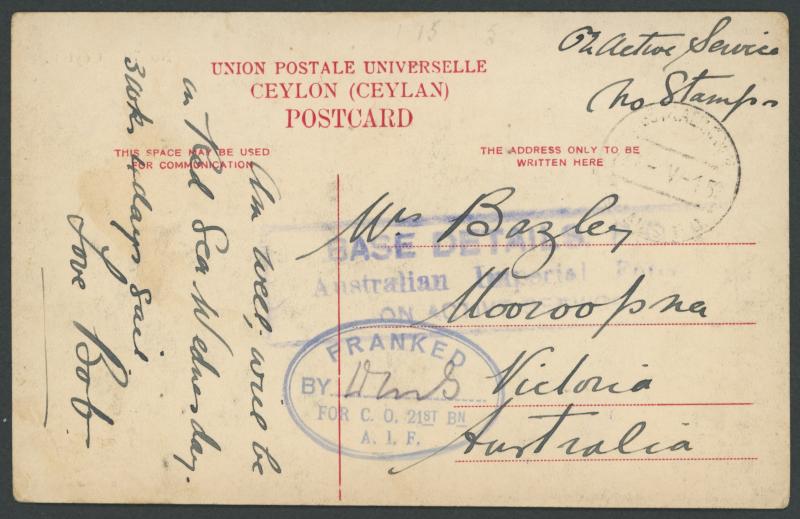 15
On Active Service
No Stamps
UNION POSTALE UNIVERSELLE
CEYLON (CEYLAN)
POSTCARD
THIS SPACE MAY BE USED
FOR COMMUNICATION
THE ADDRESS ONLY TO BE
WRITTEN HERE
Am well, will be
in Red Sea Wednesday.
3 wks 4 days sail
Love Bob
Mrs Bazley
Mooroopna
Victoria
Australia
BASE DETAILS
Australian Imperial
ON
FRANKED
BY
FOR C. O. 21ST BN
A. I. F.
V-15